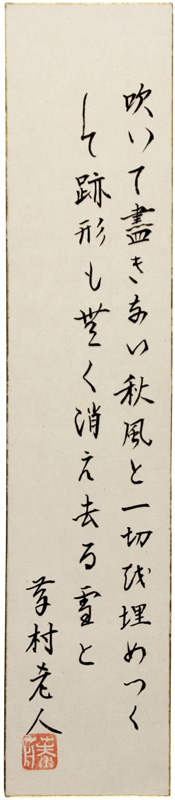 吹いて盡きない秋風と一切を埋めつく
して跡形も無く消え去る雪と
草村老人